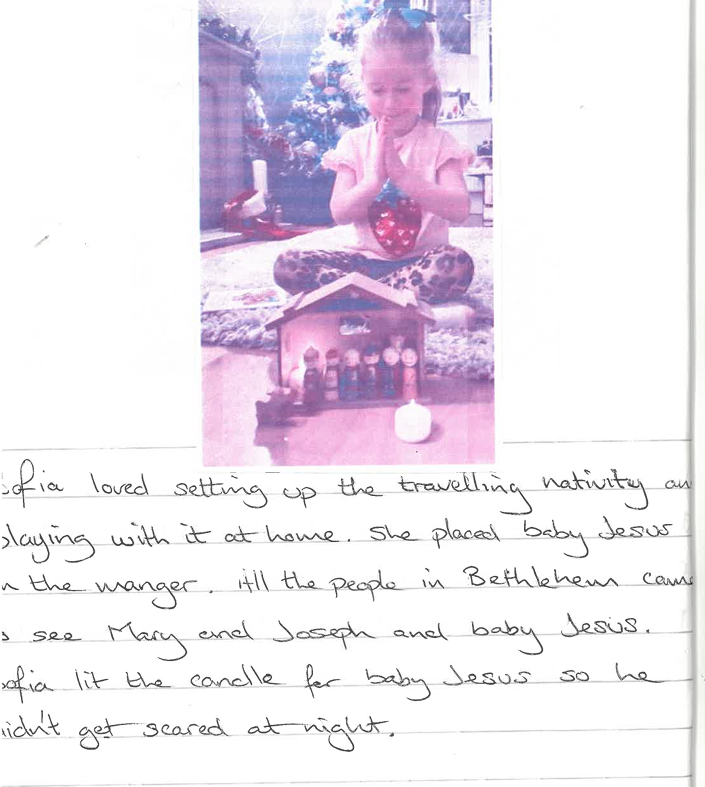 ofia loved setting up the travelling nativity an
laying with it at home. She placed baby Jesus
n the manger. All the people in Bethlehem came
see Mary and Joseph and baby Jesus.
ofia lit the candle for baby Jesus so he
idn't get scared at night.